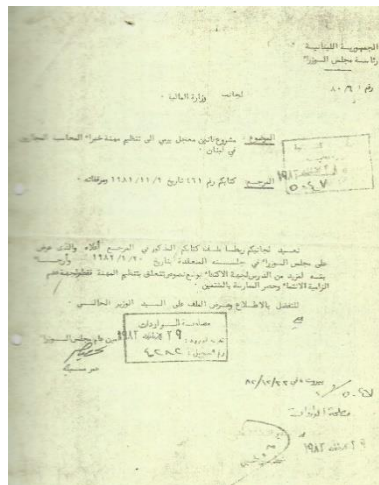 الجمهورية اللبنانية
رئاسة مجلس الوزراء
رقم ٨٠/٦
لجانب وزارة المالية .
الموضوع : مشروع قانون معجل يرمي الى تنظيم مهنة خبراء المحاسبة المجازين
في لبنان .
المرجع : كتابكم رقم ٤٦١ تاريخ ١٩٨١/١١/٩ ومرفقاته .
٥٠٤٧
نعيد لجانبكم ربطا ملف كتابكم المذكور في المرجع أعلاه والذي عرض
على مجلس الوزراء في جلسته المنعقدة بتاريخ
لمزيد من الدرس لجهة الاكتفاء بوضع نصوص تتعلق بتنظيم المهنة
الزامية الانتماء وحصر الممارسة بالمنتمين .
للتفضل بالاطلاع وعرض الملف على السيد الوزير
مصلحة الواردات
٢٩ ١٩٨٢
٤٢٨٢
أمين عام مجلس الوزراء
٥٠٤٧
مصلحة الواردات
١٩٨٢